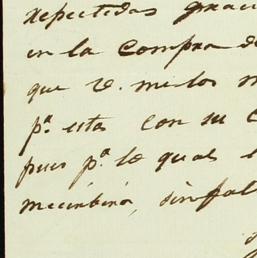 repetidas grac
en la compra de
que V. me los m
p.ª estos con su c
pues p.ª lo qual l
mecirbirá, sinfal